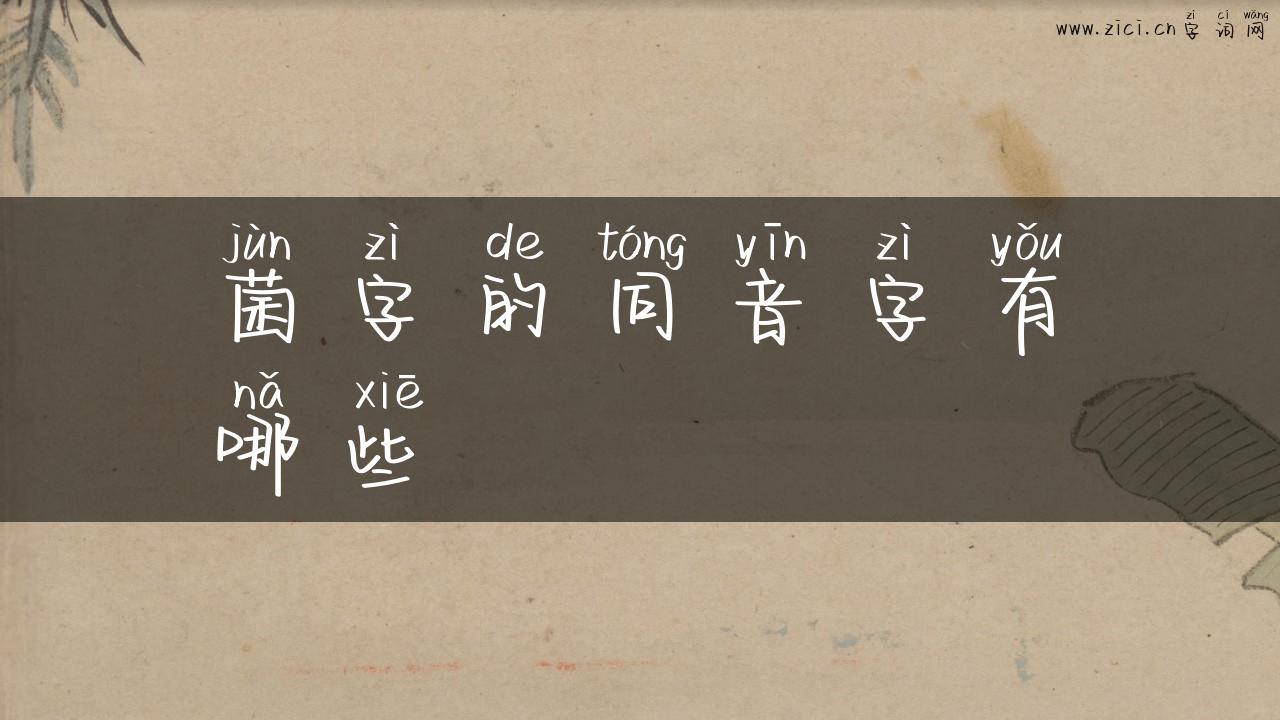 zì cí wǎng
www.zici.cn 字词网
jùn zì de tóng yīn zì yǒu
菌字的同音字有
nǎ xiē
哪些